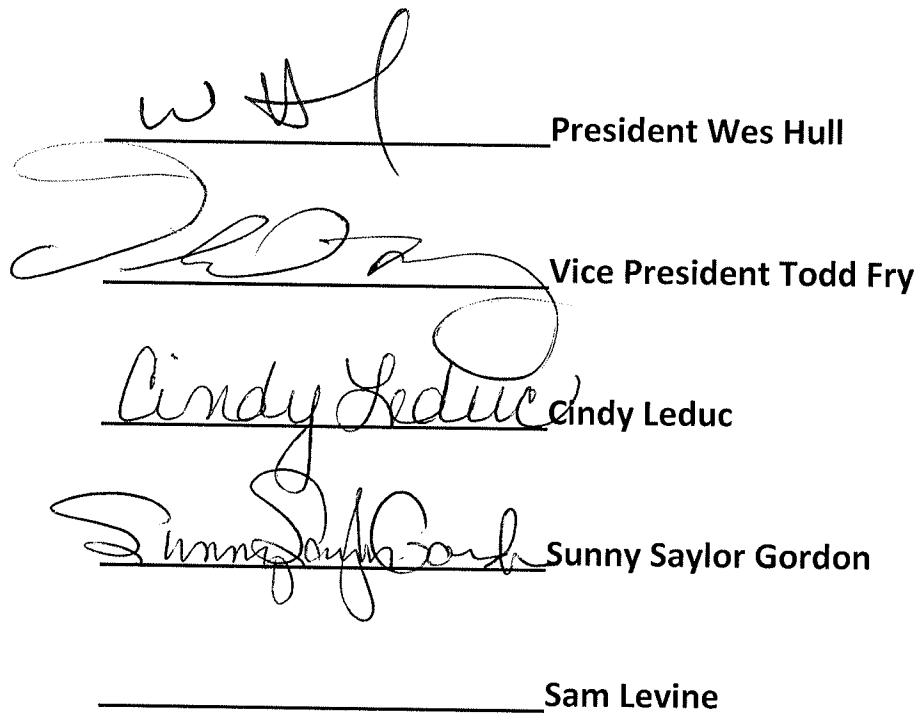 W Hull President Wes Hull
Vice President Todd Fry
Cindy Leduc Cindy Leduc
Sunny Saylor Gordon Sunny Saylor Gordon
Sam Levine